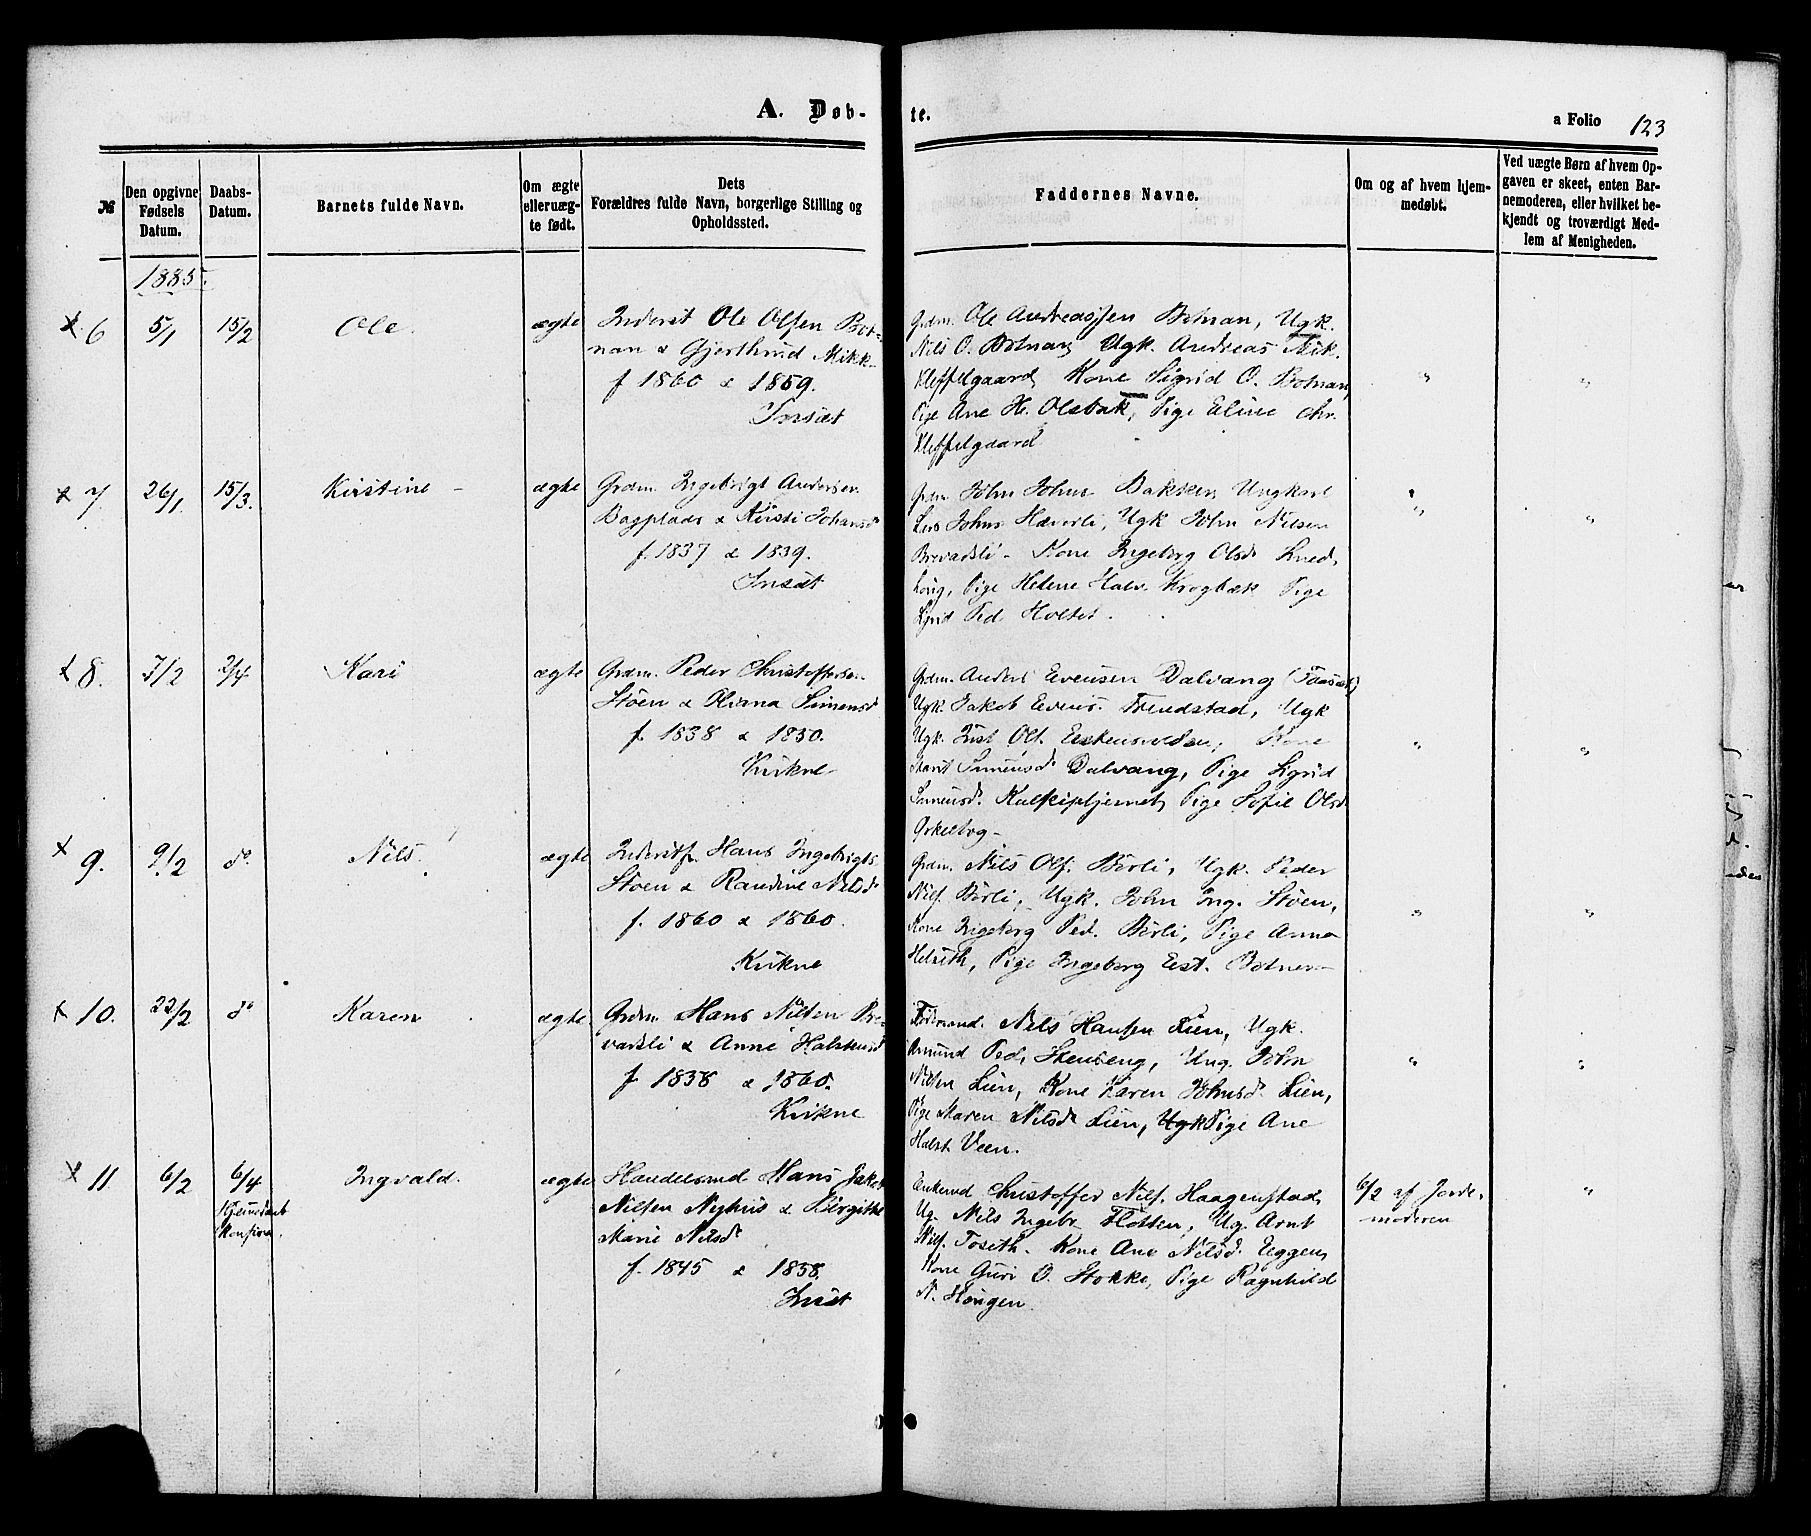 A. Døb-
te.
a Folio 123
№
Den opgivne Fødsels Datum.
Daabs-Datum.
Barnets fulde Navn.
Om ægte eller uægte født.
Dets Forældres fulde Navn, borgerlige Stilling og Opholdssted.
Faddernes Navne.
Om og af hvem hjemmedøbt.
Ved uægte Børn af hvem Opgaven er skeet, enten Barnemoderen, eller hvilket bekjendt og troværdigt Medlem af Menigheden.
1885.
6 5/1 15/2 Ole. ægte
Inderst Ole Olsen Bot-
nan & Gjertrud Mikk-
f 1860 & 1859.
Insæt
Grdm. Ole Andreassen Botnan, Ugk.
Nils O. Botnan, Ugk. Andreas Mik.
Kleffelgaard, Kone Sigrid O. Botnan,
Pige Ane H. Olsbak, Pige Eline Chr.
Kleffelgaard
"
"
7. 26/1 15/3. Kirstine - ægte
Grdm. Ingebrigt Andersen
Bagplads & Kirsti Johansd
f. 1837 & 1839.
Insæt
Grdm. John Johns Bakken, Ungkarl
Lars Johns Hæverli, Ugk John Nilsen
Brevadsli - Kone Ingeborg Olsd.
Pige Helene Halv. Krogbæk Pige
Sigrid Ped Holtet.
"
"
8. 7/2 2/4 Kari ægte
Grdm. Peder Christoffersen
Støen & Oliana Simensd
f. 1838 & 1850.
Kvikne
Grdm. Anders Evensen Dalvang (Faaset)
Ugk. Jakob Evens. Trondstad, Ugk
Ugk. Ole Kone
Marit Simensd Dalvang, Pige Sigrid
Simensd. Pige Sofie Olsd
"
"
9. 9/2 do Nils. ægte
Inderst Hans Ingebrigts.
Støen & Randine Nilsd
f. 1860 & 1860.
Kvikne
Grdm. Nils Ols. Børli, Ugk. Peder
Nils. Børli, Ugk. John Ing. Støen,
Kone Ingeborg Ped. Børli, Pige Anna
Pige Ingeborg Est. Botnen
"
"
10. 22/2 do Karen ægte
Grdm Hans Nilsen Bre-
vadsli & Anne Halstensd
f 1838 & 1860.
Kvikne
Nils Hansen Lien, Ugk.
Amund Ped. Stenseng, Ung. John
Nilsen Lien, Kone Karen Johnsd. Lien,
Pige Maren Nilsd Lien, Ugk Pige Ane
Halst Veen.
"
"
11. 6/2 6/4 Ingvald. ægte
Hjemmedaab
Konfirm.
Handelsmd Hans Jakob
Nilsen Nyhus & Birgitte
Marie Nilsd
f. 1845 & 1858.
Insæt
Enkemd Christoffer Nils. Haagenstad,
Ug. Nils Ingebr. Flotten, Ug. Arnt
Nils. Toseth. Kone Ane Nilsd. Eggen,
Kone Guri O. Stokke, Pige Ragnhild
N. Haugen.
6/2 af Jorde-
moderen
"